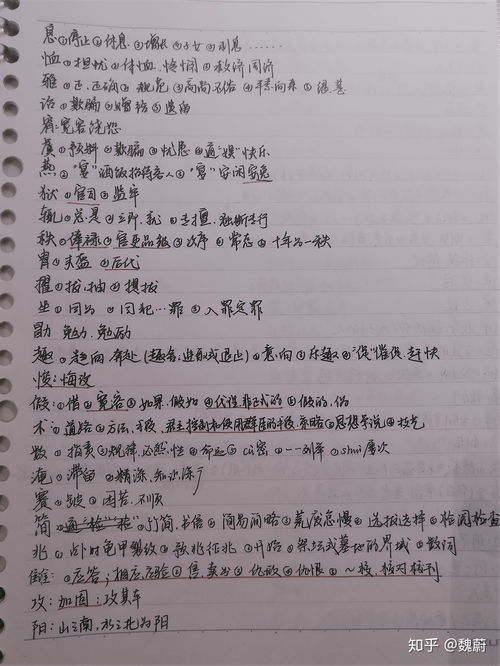 息①停止②休息③增长④子女⑤利息……
恤①担忧②体恤、怜悯③救济周济
雅①正、正确②规范③高尚不俗④平素向来⑤很、甚
诒①欺骗②赠给③遗留
宥:宽容饶恕
虞①预料②欺骗③忧患④通"娱"快乐
①"宴"酒饭招待客人②"宴"安闲安逸
狱①官司②监牢
辄①总是②立即、就③专擅、独断专行
秩①俸禄②官吏品级③次序④常态⑤十年为一秩
胄①头盔②后代
擢①拔、抽②提拔
坐①因为②因犯…罪③入罪定罪
勖 勉力、勉励
趣①趋向、奔赴(趣舍:进取或退止)②意向③乐趣④"促"催促、赶快
悛:悔改
假①借②宽容③如果、假如④代理、非正式的⑤假的、伪
术①道路②方法、手段、君主控制和使用群臣的手段、策略③思想学说④技艺
数①指责②规律、必然性③命运④cù密⑤一一列举⑥shuò屡次
淹①滞留②精深、知识深广
蹇①跛②困苦、不顺
简 ①竹简、书信②简易简略③荒废怠慢④选拔选择⑤检阅检查
兆①占卜时龟甲裂纹②预兆征兆③开始④祭坛或墓地的界域⑤数词
雠①应答;相应、应验②售、卖出③仇敌④仇恨⑤~校、核对校刊
攻:加固:攻其车
阳:山之南,水之北为阳
知乎 @魏蔚